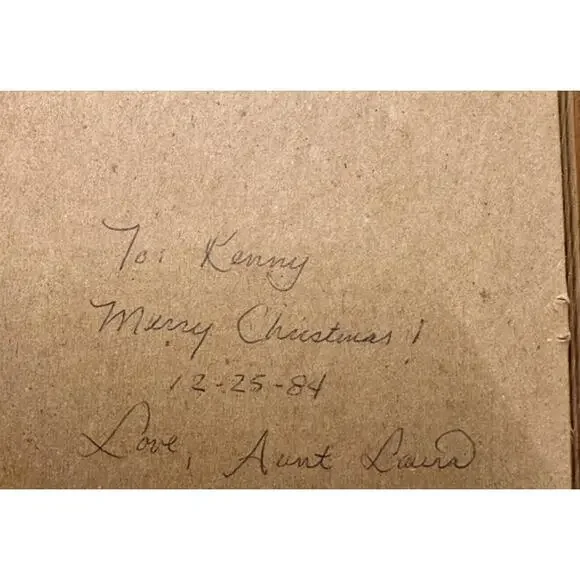 To: Kenny
Merry Christmas!
12-25-84
Love, Aunt Laura